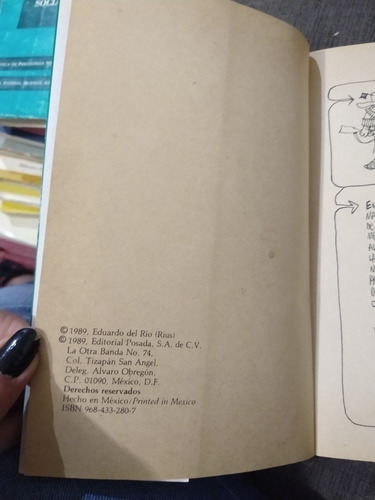 SOCI
© 1989, Eduardo del Río (Rius)
© 1989, Editorial Posada, S.A. de C.V.
La Otra Banda No. 74,
Col. Tizapán San Angel,
Deleg. Alvaro Obregón,
C.P. 01090, México, D.F.
Derechos reservados
Hecho en México/Printed in Mexico
ISBN 968-433-280-7